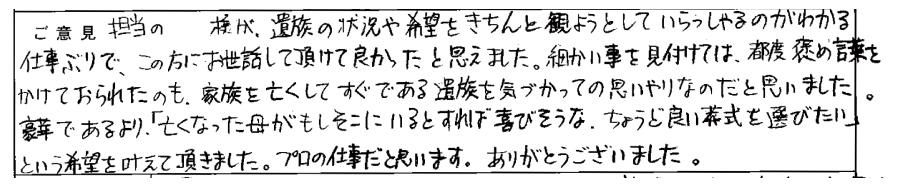 ご意見 担当の 様が、遺族の状況や希望をきちんと観ようとしていらっしゃるのがわかる
仕事ぶりで、この方にお世話して頂けて良かったと思えました。細かい事を見付けては、都度褒め言葉を
かけておられたのも、家族を亡くしてすぐである遺族を気づかっての思いやりなのだと思いました。
豪華であるより、「亡くなった母がもしそこにいるとすれば喜びそうな、ちょうど良い葬式を選びたい」
という希望を叶えて頂きました。プロの仕事だと思います。ありがとうございました。